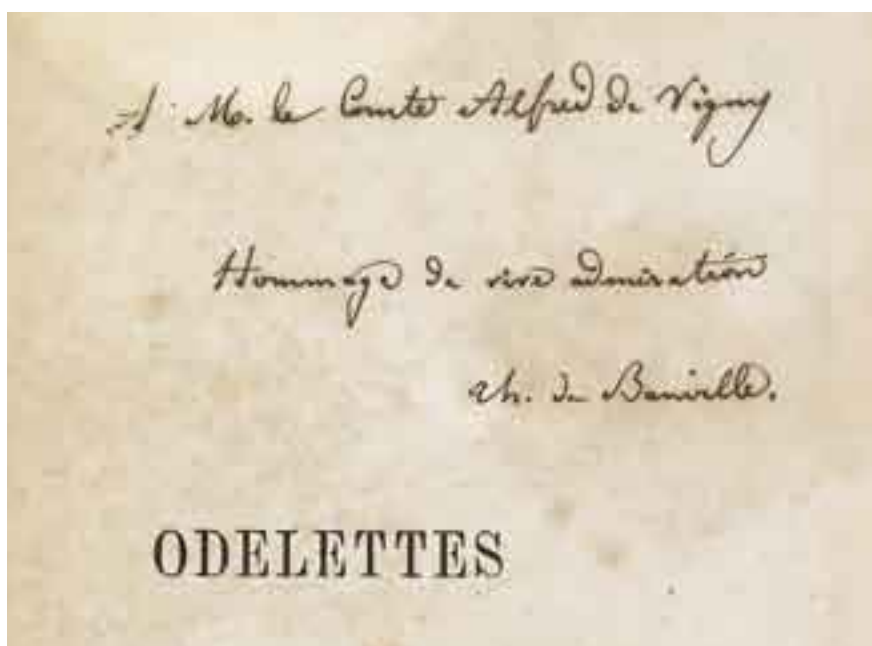 A M. le Comte Alfred de Vigny
Hommage de vive admiration
Th. de Banville.
ODELETTES